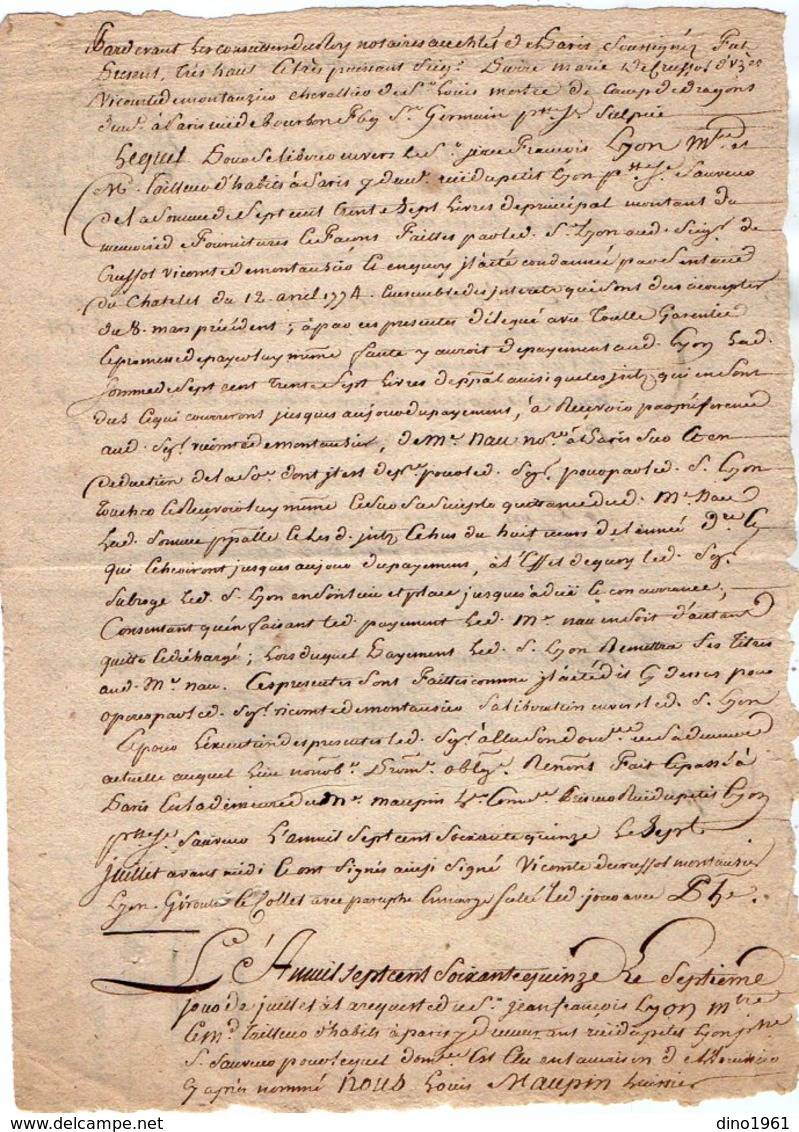 Pardevant les Conseillers du Roy notaires au chlet de Paris soussignés fut
Present, très haut et très puissant Seigr. Pierre marie de Crussol d'uzes
Vicomte de montausier chevallier de St. Louis mestre de Camp de dragons
demt. à Paris rue de Bourbon fbg St. Germain psse St. Sulpice
Lequel pour se liberer envers le Sr. jean François Lyon Mtre et
Md. Tailleur d'habits à Paris y demt. rue du petit Lyon psse St. Sauveur
de la somme de Sept cent trente Sept Livres de principal montant du
memoire de Fournitures et Façons Faittes par led. Sr. Lyon aud. Seigr. de
Crussol vicomte de montausier et en quoy il a été condamné par Sentence
du Chatelet du 12. avril 1774. Ensemble des interets qui sont dus à compter
du 8. mars précédent, a par ces presentes délégué avec Toutte Garentie
et promesse de payer luy même faute y auroit de payement aud. Lyon lad.
Somme de Sept cent Trente Sept Livres de ppal ainsi que les jnts. qui en sont
dus et qui courreront jusques au jour du payement, à Recevoir par préférence
aud. Sgr. vicomte de montausier, de Me. Nau nore. à Paris sur et en
deduction de la So. dont il est depre. pour led. Sgr. pour par led. S. Lyon
toucher et Recevoir luy même et sur sa simple quittance dud. Me. Nau
lad. Somme ppalle et lesd. jnts. échus du huit mars de l'année dre. et
qui echeoiront jusques au jour du payement, à l'Effet de quoy led. Sgr.
Subroge led. S. Lyon en son lieu et place jusques à due concurrence,
Consentant qu'en faisant led. payement led. Me. nau en soit d'autant
quitte et déchargé; Lors duquel Payement led. S. Lyon Remettra ses Titres
aud. Me. nau. Ces presentes sont Faittes comme il a été dit cy dessus pour
operer par led. Sgr. vicomte de montausier sa liberation envers led. S. Lyon
Et pour L'exécution des presentes led. Sgr. a Elu son domle. en sa demeure
actuelle auquel Lieu nonobt. Promt. oblgt. Renonct. Fait et passé à
Paris En la demeure du Me. maupin Rue du petit Lyon
psse St. Sauveur L'an mil sept cent soixante quinze le Sept
juillet avant midi et ont signés ainsi signé Vicomte de crussol montausier
Lyon. Giroust et Collet avec paraphe En marge scellé led. jour avec Phe.
L'An mil sept cent soixante quinze le Septieme
jour de juillet à la requeste du Sr. jean françois Lyon mtre
et Md. Tailleur d'habits à paris y demeurant rue du petit Lyon psse
S. Sauveur pour lequel domle. est Elu en la maison de
cy après nommé Nous Louis Maupin huissier
dino1961